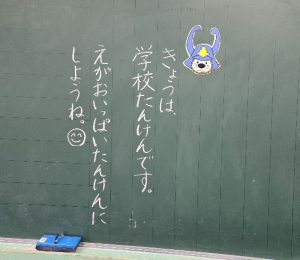 きょうは、
学校たんけんです。
えがおいっぱいたんけんに
しようね。